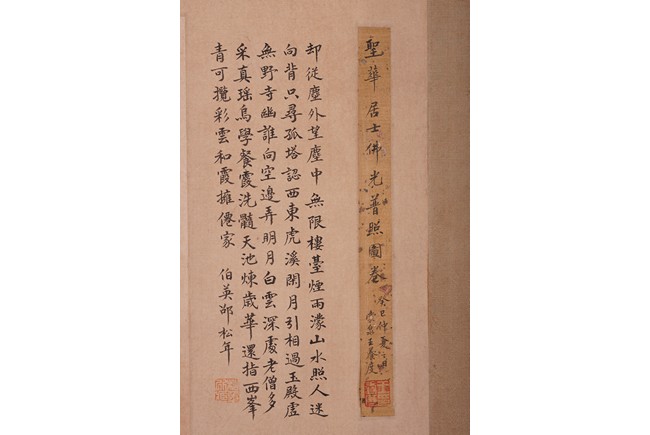 聖華居士佛光普照圖卷
癸巳仲夏之
王養度
却從塵外望塵中無限樓臺煙雨濛山水照人迷
向背只尋孤塔認西東虎溪閑月引相過玉殿虛
無野寺幽誰向空邊弄明月白雲深處老僧多
采真瑶島學餐霞洗髓天池煉歲華還指西峯
青可攬彩雲和霞擁僊家 伯英邵松年